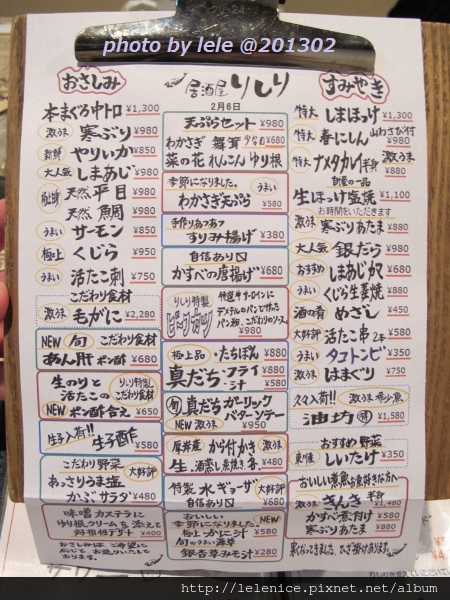 photo by lele @201302
居酒屋 りしり
2月6日
おさしみ
本まぐろ中トロ ¥1,300
激うま 寒ぶり ¥980
新鮮 やりいか ¥850
大人気 しまあじ ¥980
天然 平目 ¥980
天然 魚周 ¥980
うまい サーモン ¥850
極上 くじら ¥950
うまい 活たこ刺 ¥750
こだわり食材
激うま 毛がに ¥2,280
NEW 旬 こだわり食材
あん肝 ポン酢 ¥680
生のりと りしり特製
活たこの こだわり食材
NEW ポン酢合え ¥650
生子入荷!! 生子酢 ¥580
こだわり野菜
あっさりうま塩 大好評
かぶサラダ ¥480
味噌カステラに
ゆり根クリームを添えて
好相性デザート ¥400
おさしみは、ご希望に
応じて お造りいたして
おります。
天ぷらセット ¥980
わかさぎ 舞茸 少なめ ¥680
菜の花 れんこん ゆり根
季節になりました。 うまい
わかさぎ天ぷら ¥580
手作りあつあつ
すりみ揚げ ¥380
自信あり
かすべの唐揚げ ¥680
りしり特製 ビーフカツ
特選牛サーロインに
デメテルのパンで作った
パン粉、こだわりのソース。
¥980
極上品 ・たちぽん ¥880
真だち・フライ ¥880
汁 ¥580
旬 真だちガーリック
バターソテー
NEW 激うま ¥950
厚岸産 から付かき 激うま
生、酒蒸し、炭焼き 各 ¥480
特製 水ギョーザ 大好評
自信あり ¥680
おいしい
季節になりました。 NEW
極上 かに汁 ¥580
旬のうまい海草
銀杏草みそ汁 ¥280
すみやき
特大 しまほっけ ¥1,300
特大 春にしん 山わさび付 ¥980
特大 ナメタカレイ半身 激うま ¥880
自慢の一品
生ほっけ塩焼 ¥1,100
お時間をいただきます
激うま 寒ぶりあたま ¥880
大人気 銀だら ¥980
おすすめ しまあじカマ ¥680
うまい くじら生姜焼 ¥880
酒の肴 めざし ¥450
大好評 活たこ串 2本 ¥580
うまい タコトンビ ¥350
激うま はまぐり ¥750
久々入荷!! 激うま 希少魚
油坊 ¥1,580
おすすめ野菜
しいたけ ¥350
おいしい煮魚お好きな方へ
激うま きんき 半身 ¥1,480
かすべ煮付け ¥580
寒ぶりあたま ¥880
寒くなってきました。ひざ掛けあります。
http://lelenice.pixnet.net/album